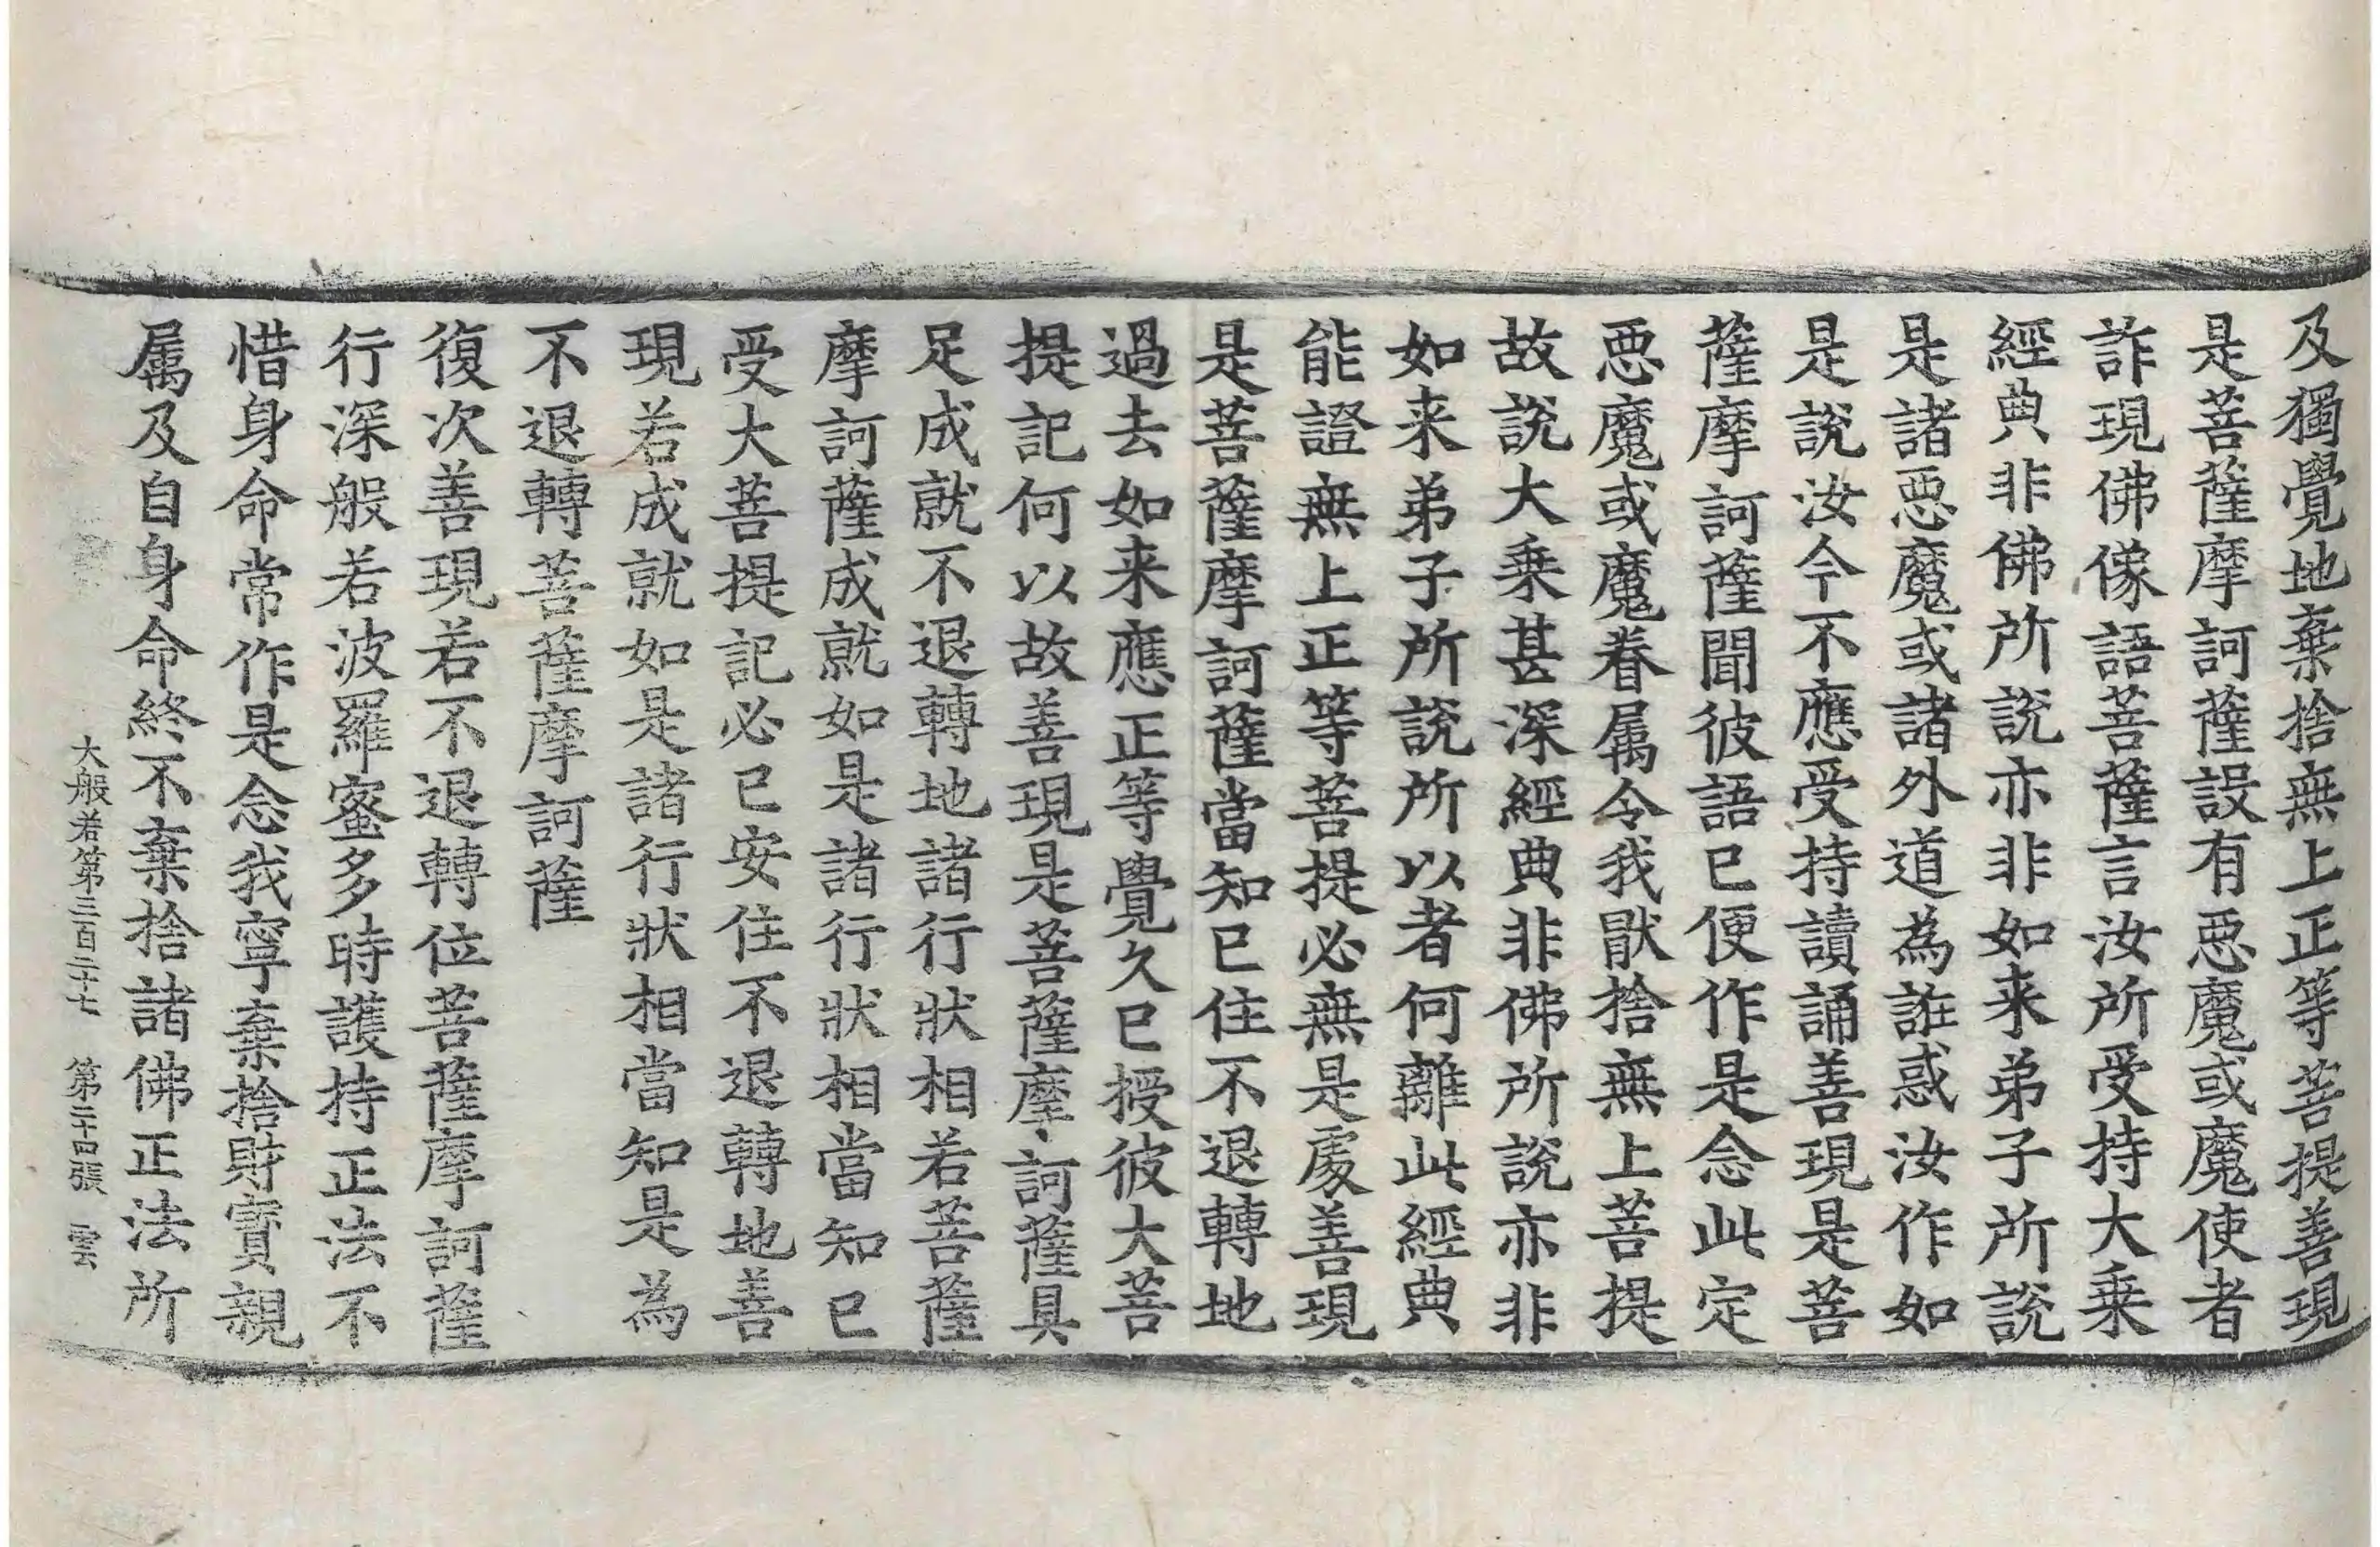 及獨覺地棄捨無上正等菩提善現
是菩薩摩訶薩設有惡魔或魔使者
詐現佛像語菩薩言汝所受持大乗
經典非佛所說亦非如来弟子所說
是諸惡魔或諸外道為誑惑汝作如
是說汝今不應受持讀誦善現是菩
薩摩訶薩聞彼語已便作是念此定
惡魔或魔眷属令我猒捨無上菩提
故說大乗甚深經典非佛所說亦非
如来弟子所說所以者何離此經典
能證無上正等菩提必無是處善現
是菩薩摩訶薩當知已住不退轉地
過去如来應正等覺久已授彼大菩
提記何以故善現是菩薩摩訶薩具
足成就不退轉地諸行狀相若菩薩
摩訶薩成就如是諸行狀相當知已
受大菩提記必已安住不退轉地善
現若成就如是諸行狀相當知是為
不退轉菩薩摩訶薩
復次善現若不退轉位菩薩摩訶薩
行深般若波羅蜜多時護持正法不
惜身命常作是念我寧棄捨財寶親
属及自身命終不棄捨諸佛正法所
大般若第三百二十七　第二十四張　雲